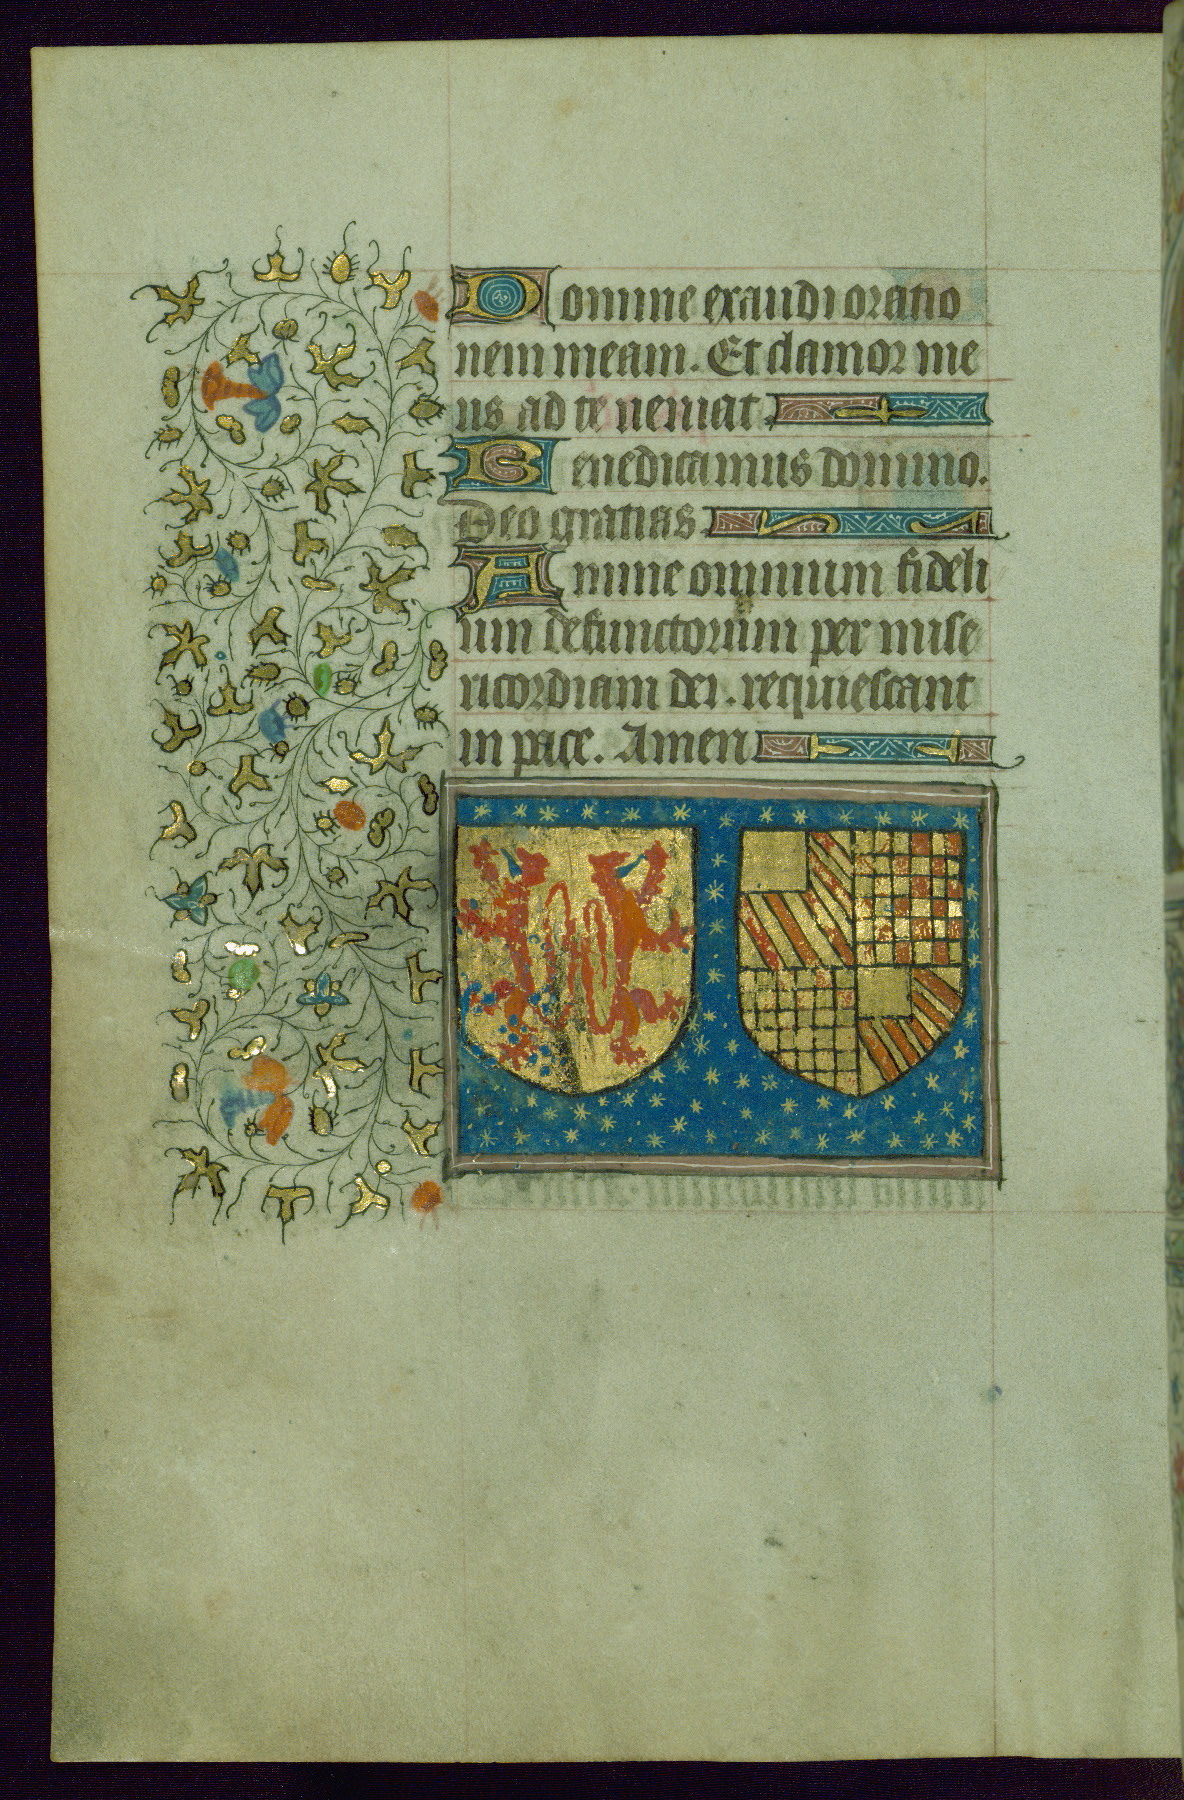 Domine exaudi oratio
nem meam. Et clamor me
us ad te veniat
Benedicamus domino.
Deo gratias
Anime omnium fideli
um defunctorum per mise
ricordiam dei. requiescant
in pace. Amen